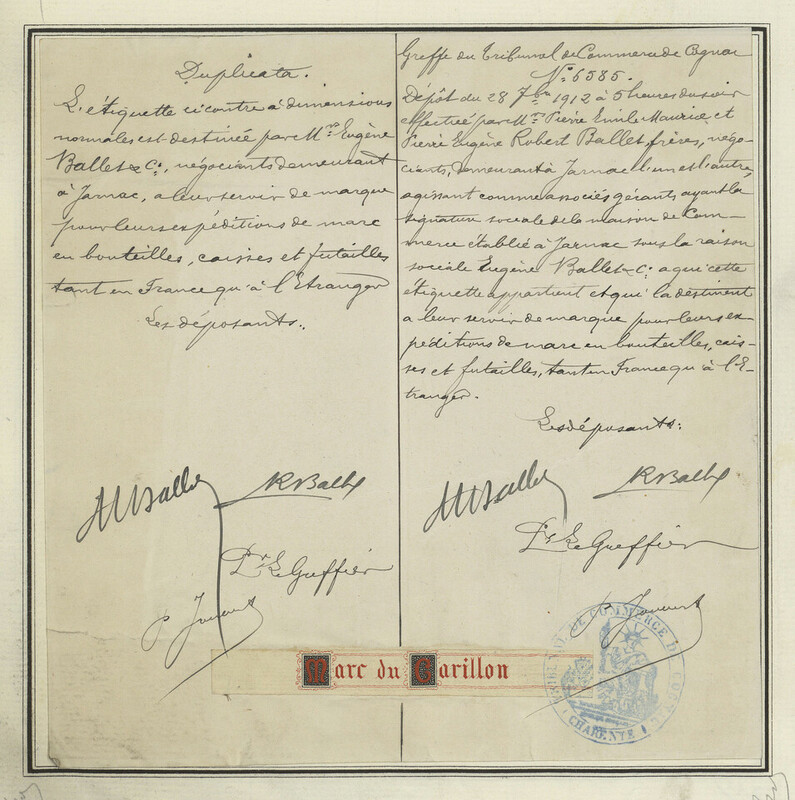 Duplicata.
L'étiquette ci contre à dimensions
normales est destinée par Mrs Eugène
Ballet & Cie, négociants demeurant
à Jarnac, a leur servir de marque
pour leurs expéditions de marc
en bouteilles, caisses et futailles
tant en France qu'à l'Etranger
Les déposants:
M Ballet
R Ballet
Pr Le Greffier
Greffe du Tribunal de Commerce de Cognac
No 6585.
Dépôt du 28 7bre 1912 à 5 heures du soir
effectuée par Mrs Pierre Emile Maurice et
Pierre Eugène Robert Ballet, frères, négo-
ciants, demeurant à Jarnac l'un et l'autre,
agissant comme associés gérants ayant la
signature sociale de la maison de Com-
merce établie à Jarnac sous la raison
sociale Eugène Ballet & Cie a qui cette
étiquette appartient et qui la destinent
a leur servir de marque pour leurs ex-
péditions de marc en bouteilles, cais-
ses et futailles, tant en France qu'à l'E-
tranger.
Les déposants:
M Ballet
R Ballet
Pr Le Greffier
Marc du Carillon
TRIBUNAL DE COMMERCE DE COGNAC
(CHARENTE)